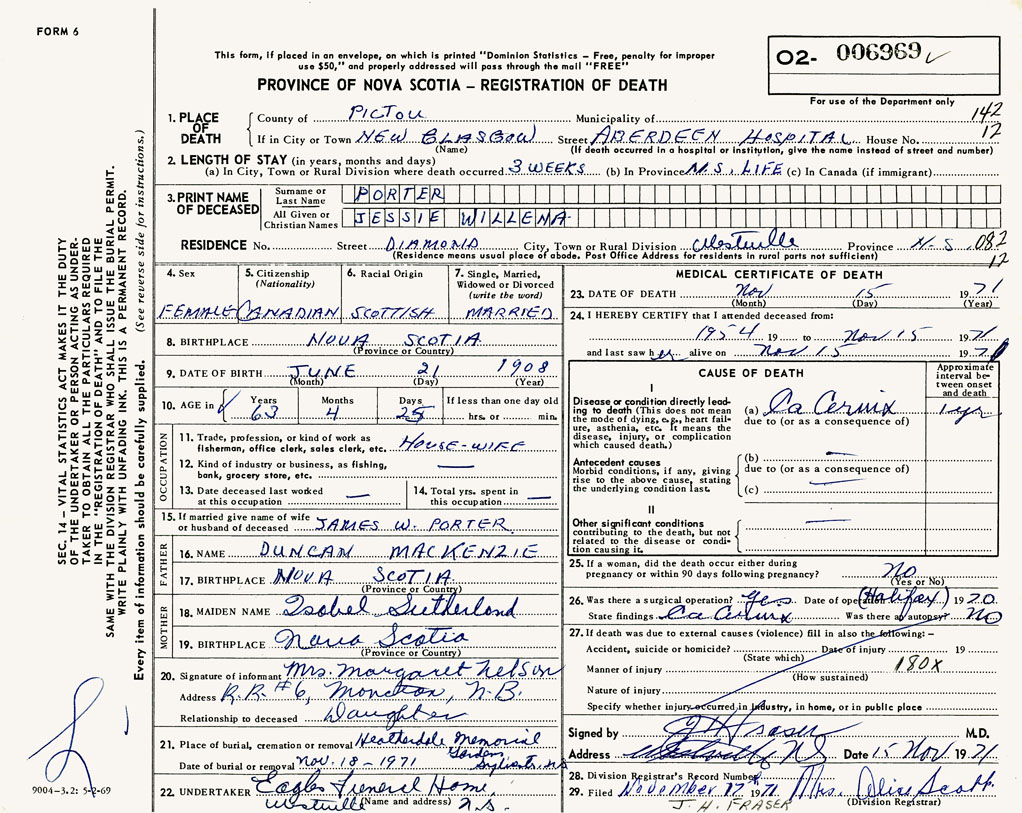 FORM 6
This form, if placed in an envelope, on which is printed "Dominion Statistics – Free, penalty for improper
use $50," and properly addressed will pass through the mail "FREE"
PROVINCE OF NOVA SCOTIA – REGISTRATION OF DEATH
O2- 006969
For use of the Department only
1. PLACE OF DEATH
County of PICTOU Municipality of 142
If in City or Town NEW GLASGOW Street ABERDEEN HOSPITAL House No. 12
(Name) (If death occurred in a hospital or institution, give the name instead of street and number)
2. LENGTH OF STAY (in years, months and days)
(a) In City, Town or Rural Division where death occurred 3 WEEKS (b) In Province N.S. LIFE (c) In Canada (if immigrant)
3. PRINT NAME OF DECEASED
Surname or Last Name PORTER
All Given or Christian Names JESSIE WILLENA
RESIDENCE No. Street DIAMOND City, Town or Rural Division Westville Province N.S. 082
(Residence means usual place of abode. Post Office Address for residents in rural parts not sufficient) 12
4. Sex
FEMALE
5. Citizenship
(Nationality)
CANADIAN
6. Racial Origin
SCOTTISH
7. Single, Married,
Widowed or Divorced
(write the word)
MARRIED
8. BIRTHPLACE NOVA SCOTIA
(Province or Country)
9. DATE OF BIRTH JUNE 21 1908
(Month) (Day) (Year)
10. AGE in Years 63 Months 4 Days 25 If less than one day old
hrs. or min.
OCCUPATION
11. Trade, profession, or kind of work as
fisherman, office clerk, sales clerk, etc. HOUSE-WIFE
12. Kind of industry or business, as fishing,
bank, grocery store, etc. —
13. Date deceased last worked
at this occupation —
14. Total yrs. spent in
this occupation —
15. If married give name of wife
or husband of deceased JAMES W. PORTER
FATHER
16. NAME DUNCAN MACKENZIE
17. BIRTHPLACE NOVA SCOTIA
(Province or Country)
MOTHER
18. MAIDEN NAME Isobel Sutherland
19. BIRTHPLACE Nova Scotia
(Province or Country)
20. Signature of informant Mrs. Margaret Nelson
Address R.R. #6, Moncton, N.B.
Relationship to deceased Daughter
21. Place of burial, cremation or removal Heatherdale Memorial
Gardens
Date of burial or removal Nov. 18 – 1971
22. UNDERTAKER Eagles Funeral Home,
Westville (Name and address) N.S.
MEDICAL CERTIFICATE OF DEATH
23. DATE OF DEATH Nov 15 1971
(Month) (Day) (Year)
24. I HEREBY CERTIFY that I attended deceased from:
1954 19 to Nov 15 1971
and last saw her alive on Nov 15 1971
CAUSE OF DEATH
Approximate
interval be-
tween onset
and death
I
Disease or condition directly lead-
ing to death (This does not mean
the mode of dying, e.g., heart fail-
ure, asthenia, etc. It means the
disease, injury, or complication
which caused death.)
(a) Ca Cervix 1 yr
due to (or as a consequence of)
Antecedent causes
Morbid conditions, if any, giving
rise to the above cause, stating
the underlying condition last.
(b) —
due to (or as a consequence of)
(c) —
II
Other significant conditions
contributing to the death, but not
related to the disease or condi-
tion causing it. —
25. If a woman, did the death occur either during
pregnancy or within 90 days following pregnancy? No
(Yes or No)
26. Was there a surgical operation? Yes Date of operation (Halifax) 1970
State findings Ca Cervix Was there an autopsy? No
27. If death was due to external causes (violence) fill in also the following: –
Accident, suicide or homicide? Date of injury 19
(State which)
Manner of injury 180X
(How sustained)
Nature of injury
Specify whether injury occurred in industry, in home, or in public place
Signed by J H Fraser M.D.
Address Westville NS Date 15 Nov 1971
28. Division Registrar's Record Number
29. Filed November 17 1971 Mrs. Alice Scott
J. H. FRASER (Division Registrar)
SEC. 14 – VITAL STATISTICS ACT MAKES IT THE DUTY
OF THE UNDERTAKER OR PERSON ACTING AS UNDER-
TAKER TO OBTAIN ALL THE PARTICULARS REQUIRED
IN THE "REGISTRATION OF DEATH" AND TO FILE THE
SAME WITH THE DIVISION REGISTRAR WHO SHALL ISSUE THE BURIAL PERMIT.
WRITE PLAINLY WITH UNFADING INK. THIS IS A PERMANENT RECORD.
Every item of information should be carefully supplied. (See reverse side for instructions.)
9004-3.2: 5-2-69